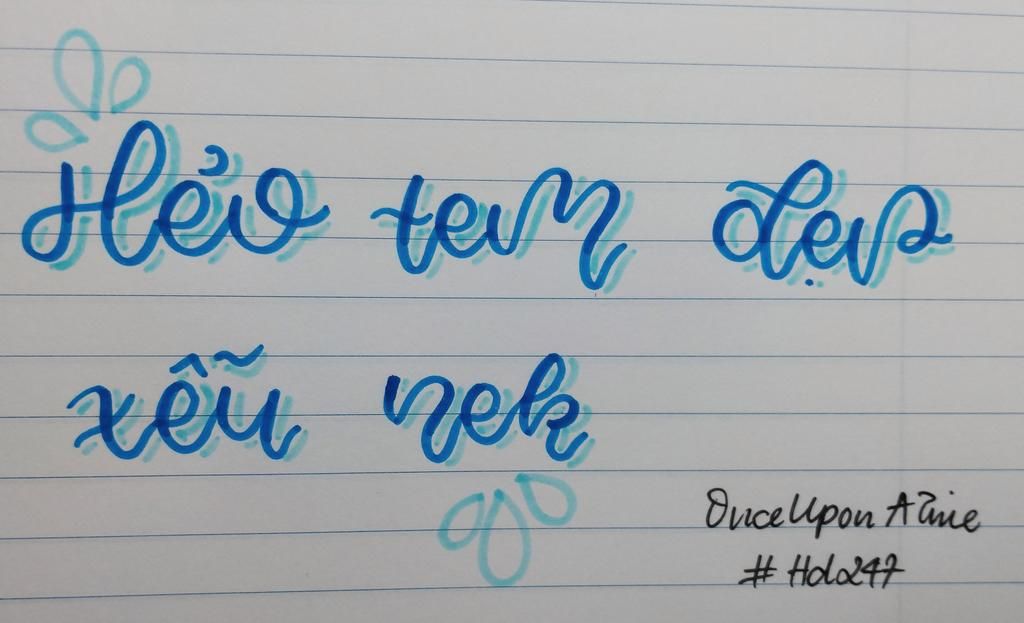 Hẻo tem dẹp
xễu nek
OnceUpon A Time
# Hdla247